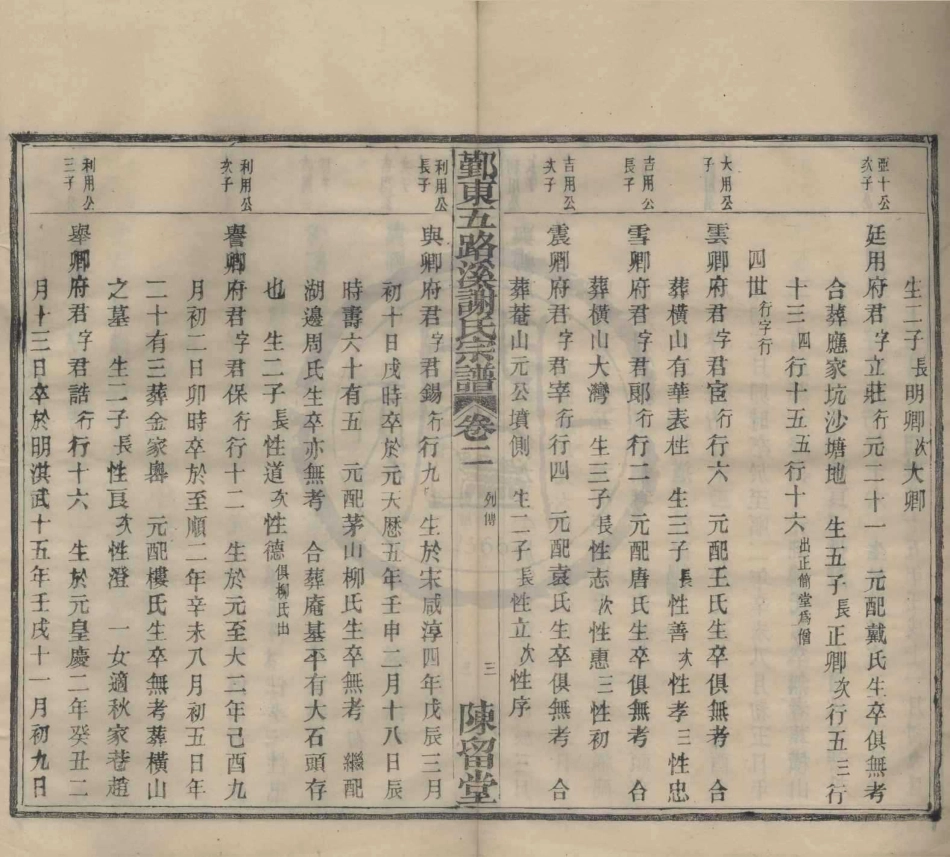 生二子長明卿次大卿
亞十公次子
廷用府君字立莊行元二十一　元配戴氏生卒俱無考
合葬應家坑沙塘地　生五子長正卿次行五三行
十三四行十五五行十六出正前堂為僧
四世行字行
大用公子
雲卿府君字君宦行六　元配王氏生卒俱無考　合
葬橫山有華表柱　生三子長性善次性孝三性忠
吉用公長子
雪卿府君字君郎行二　元配唐氏生卒俱無考　合
葬橫山大灣　生三子長性志次性惠三性初
吉用公次子
震卿府君字君宰行四　元配袁氏生卒俱無考　合
葬菴山元公墳側　生二子長性立次性序
鄞東五路溪謝氏宗譜　卷二　列傳　三　陳留堂
利用公長子
與卿府君字君錫行行九　生於宋咸淳四年戊辰三月
初十日戌時卒於元天曆五年壬申二月十八日辰
時壽六十有五　元配茅山柳氏生卒無考　繼配
湖邊周氏生卒亦無考　合葬庵基平有大石頭存
也　生二子長性道次性德俱柳氏出
利用公次子
譽卿府君字君保行行十二　生於元至大三年己酉九
月初二日卯時卒於至順二年辛未八月初五日年
二十有三葬金家嶴　元配樓氏生卒無考葬橫山
之墓　生二子長性良次性澄　一女適秋家巷趙
利用公三子
舉卿府君字君誥行行十六　生於元皇慶二年癸丑二
月十三日卒於明洪武十五年壬戌十一月初九日